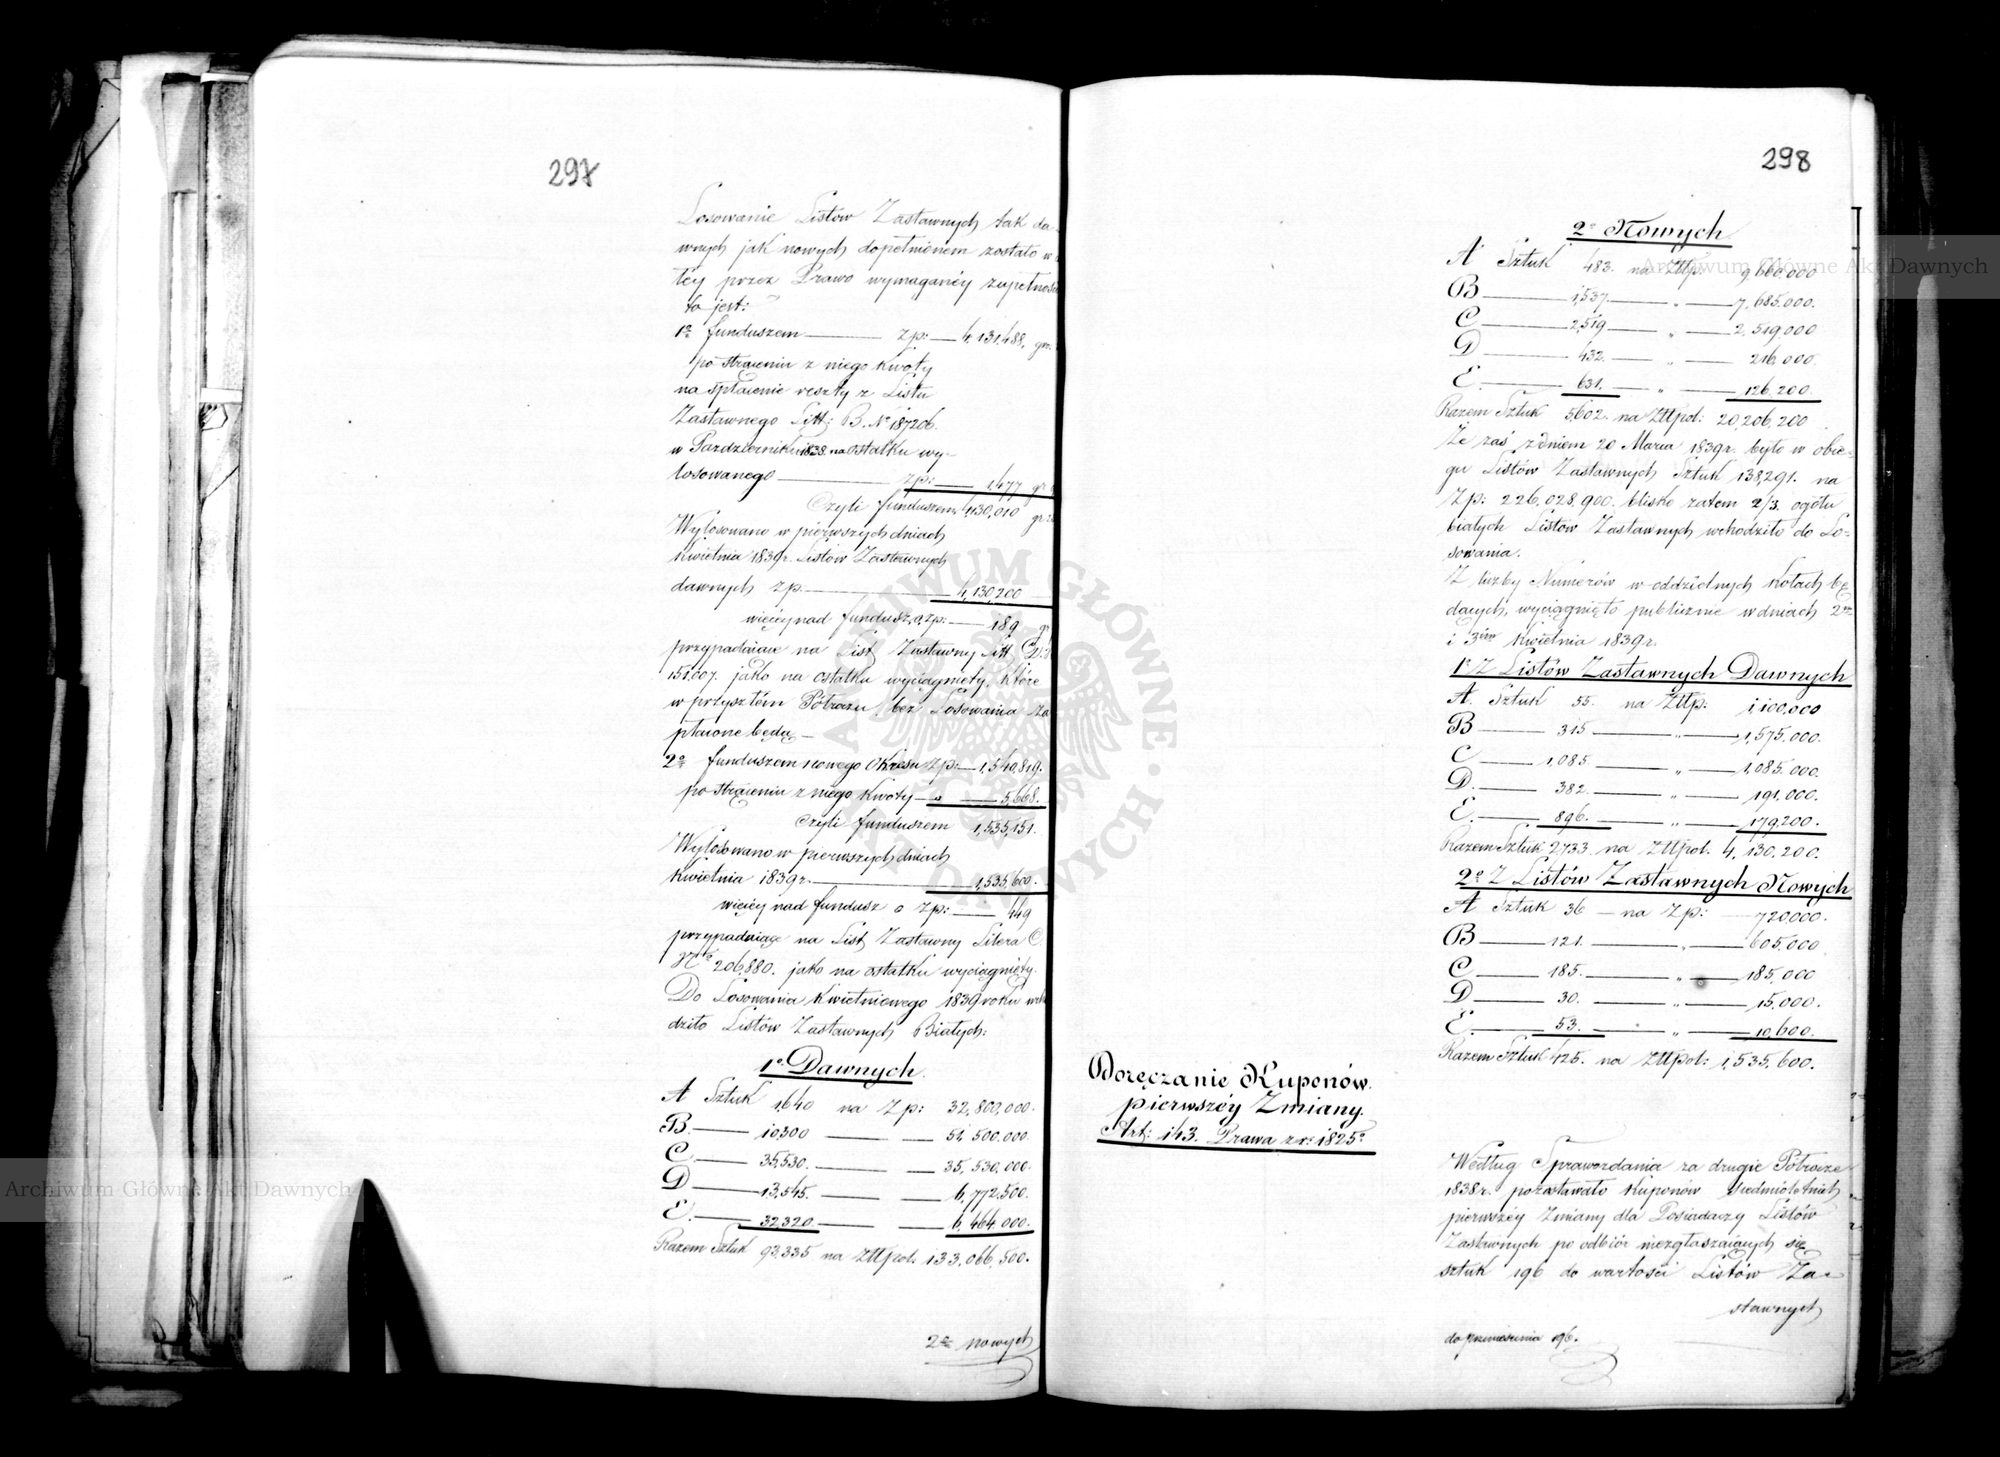 297
Losowanie Listów Zastawnych tak da-
wnych jak nowych dopełnionem zostało w
tey przez Prawo wymaganéy zupełności
to jest:
1º funduszem — zp: — 4,131,488, gr.
po strąceniu z niego kwoty
na spłacenie reszty z Listu
Zastawnego Litt: B. Nº 187206.
w Pazdzierniku 1838. na ostatku wy-
losowanego — zp: — 1,477 gr
Czyli funduszem 4,130,010 gr
Wylosowano w pierwszych dniach
Kwietnia 1839r. Listów Zastawnych
dawnych zp. — 4,130,200
więcéy nad fundusz o zp: — 189 gr
przypadaiące na List Zastawny Litt
151,007. jako na ostatku wyciągnięty, które
w przyszłém Półroczu bez Losowania Za
płacone będą —
2º funduszem nowego Okresu zp: — 1,540,819.
po strąceniu z niego kwoty — „ — 5,668.
czyli funduszem 1,535,151.
Wylosowano w pierwszych dniach
Kwietnia 1839r. — 1,535,600.
więcéy nad fundusz o zp: — 449
przypadaiące na List Zastawny Litera C.
206,880. jako na ostatku wyciągnięty.
Do Losowania Kwietniowego 1839 roku wcho
dziło Listów Zastawnych Białych:
1º Dawnych
A Sztuk 1,640 na Zp: 32,800,000.
B. — 10,300 — — 51,500,000.
C — 35,530. — — 35,530,000.
D — 13,545. — — 6,772,500.
E. — 32,320 — — 6,464,000.
Razem Sztuk 93,335 na Złłpol: 133,066,500.
2º nowych
298
2º Nowych
A Sztuk 483. na Złłp: 9,660,000
B — 1,537. — „ — 7,685,000.
C — 2,519 — „ — 2,519,000
D — 432. — „ — 216,000.
E. — 631. — „ — 126,200.
Razem Sztuk 5,602. na Złłpol: 20,206,200
Że zaś z dniem 20 Marca 1839r. było w obie-
gu Listów Zastawnych Sztuk 138,291. na
Zp: 226,028,900. blisko zatem 2/3. ogółu
białych Listów Zastawnych wchodziło do Lo-
sowania.
Z liczby Numerów w oddzielnych kołach bę
dących, wyciągnięto publicznie w dniach 2m
i 3im kwietnia 1839r.
1º Z Listów Zastawnych Dawnych
A. Sztuk 55. na Złłp: 1,100,000
B — 315 — „ — 1,575,000.
C — 1,085. — „ — 1,085,000.
D. — 382. — „ — 191,000.
E. — 896. — „ — 179,200.
Razem Sztuk 2,733. na Złłpol. 4,130,200.
2º Z Listów Zastawnych Nowych
A Sztuk 36 — na Zp: — 720,000.
B — 121. — „ — 605,000
C — 185. — „ — 185,000
D — 30. — „ — 15,000.
E. — 53. — „ — 10,600.
Razem Sztuk 425. na Złłpol: 1,535,600.
Doręczanie Kuponów.
pierwszéy Zmiany.
Art: 143. Prawa z r: 1825.
Według Sprawozdania za drugie Półrocze
1838r. pozostawało Kuponów siedmioletnich
pierwszéy Zmiany dla Posiadaczy Listów
Zastawnych po odbiór niezgłaszaiących się
sztuk 196 do wartości Listów Za-
stawnych
do przeniesienia 196.
Archiwum Główne Akt Dawnych
Archiwum Główne Akt Dawnych
ARCHIWUM GŁÓWNE AKT DAWNYCH